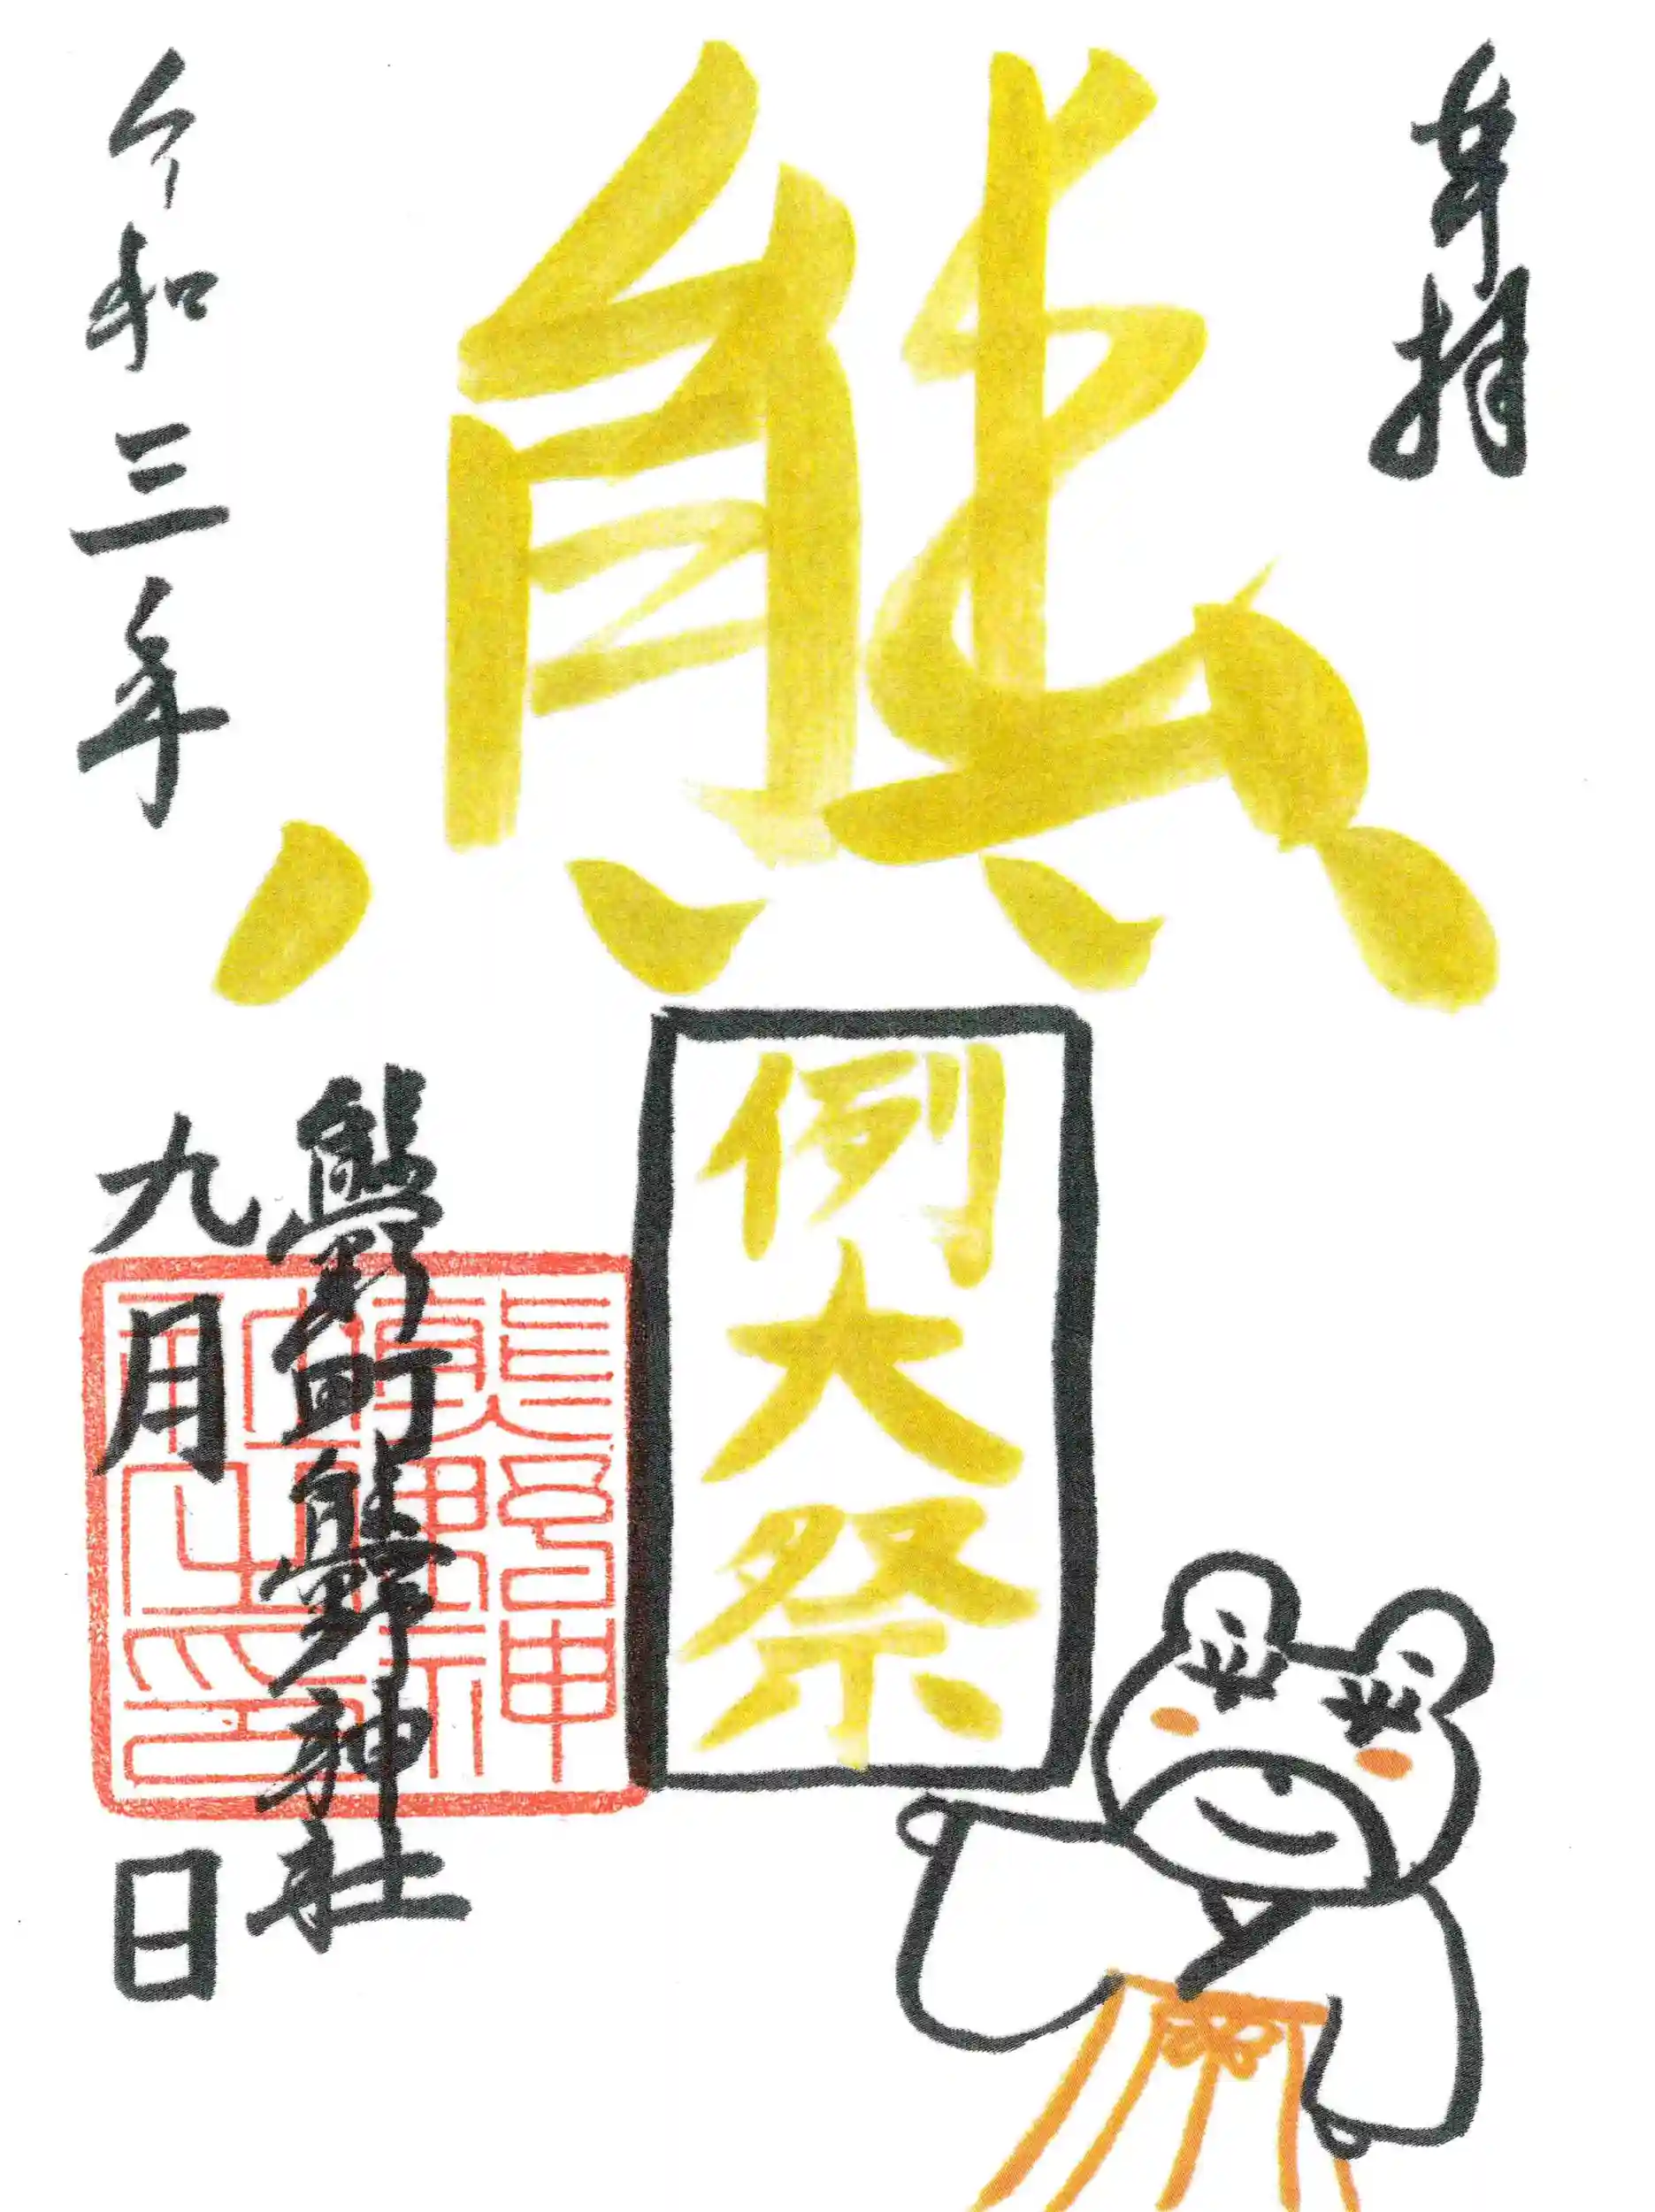 奉拝
熊
例大祭
熊野町熊野神社
令和三年
九月
日
熊野神